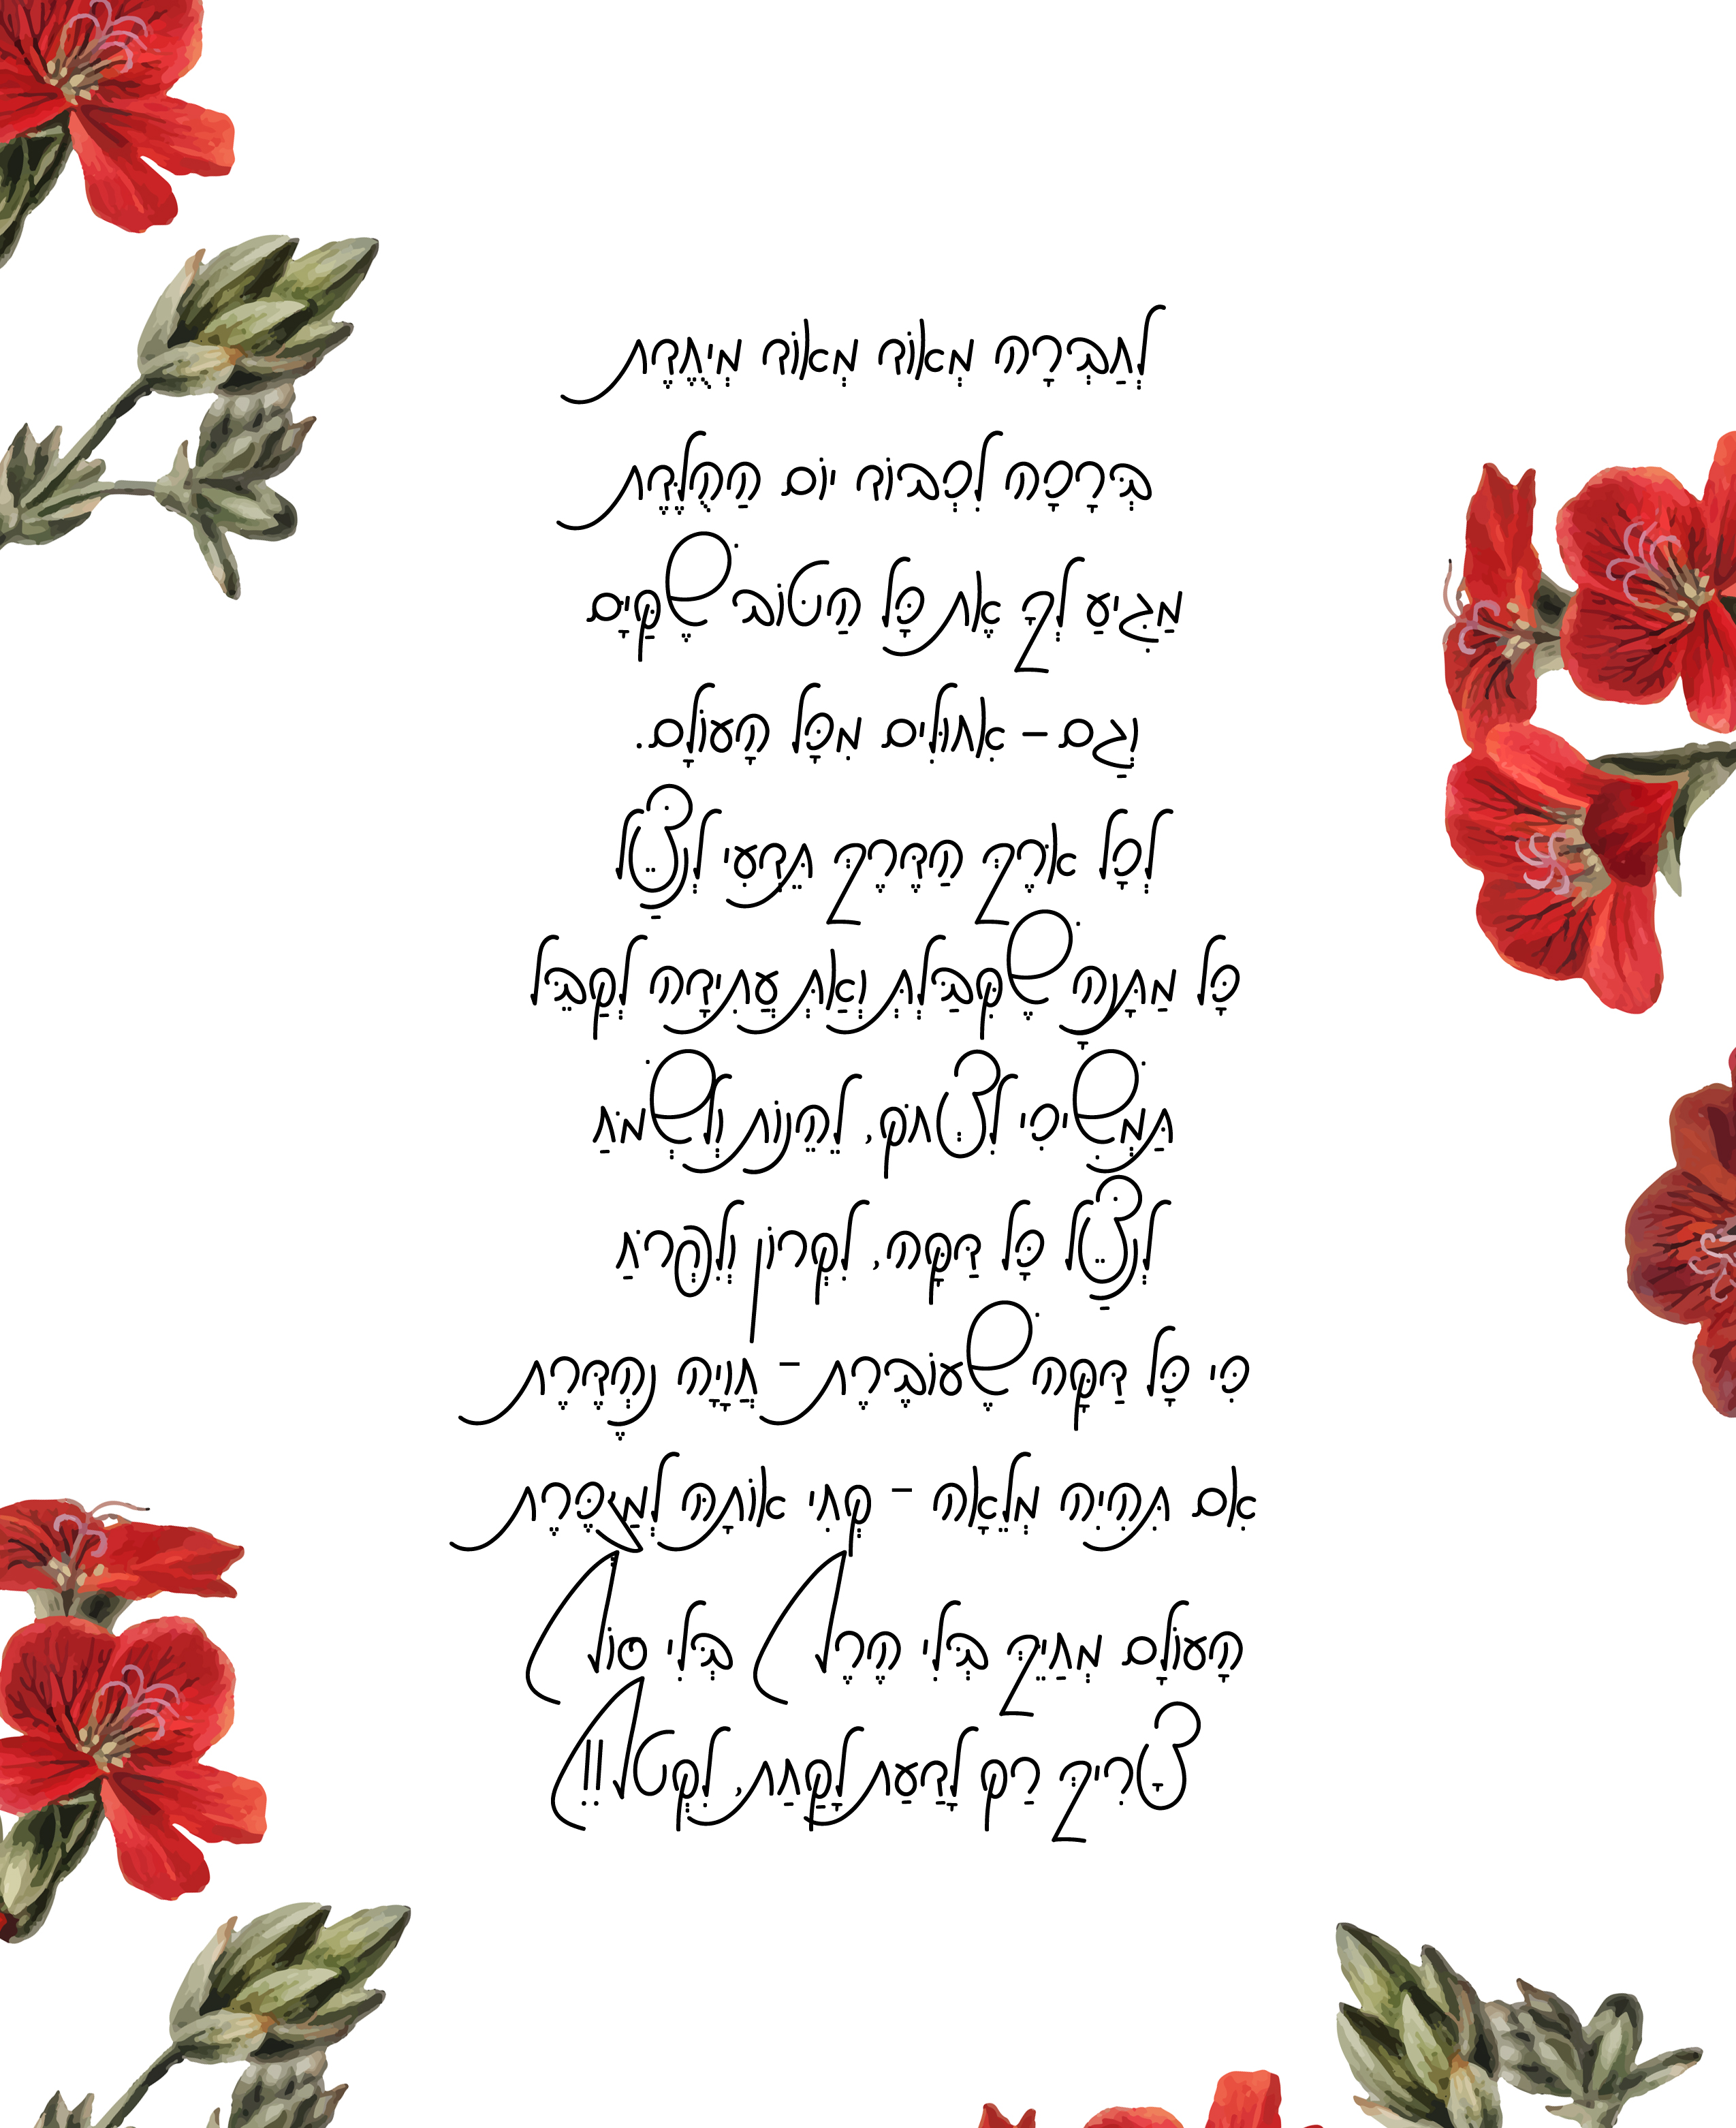 לַחֲבֵרָה מְאוֹד מְאוֹד מְיֻחֶדֶת
בְּרָכָה לִכְבוֹד יוֹם הַהֻלֶּדֶת
מַגִּיעַ לָךְ אֶת כָּל הַטּוֹב שֶׁקַּיָּם
וְגַם – אִחוּלִים מִכָּל הָעוֹלָם.
לְכָל אֹרֶךְ הַדֶּרֶךְ תֵּדְעִי לְנַצֵּל
כָּל מַתָּנָה שֶׁקִּבַּלְתְּ וְאַתְּ עֲתִידָה לְקַבֵּל
תַּמְשִׁיכִי לִצְחֹק, לֵהָנוֹת וְלִשְׂמֹחַ
לְנַצֵּל כָּל דַּקָּה, לִקְרֹן וְלִפְרֹחַ
כִּי כָּל דַּקָּה שֶׁעוֹבֶרֶת – חֲוָיָה נֶהְדֶּרֶת
אִם תִּהְיִי מְלֵאָה – קְחִי אוֹתָהּ לְמַזְכֶּרֶת
הָעוֹלָם מְחַיֵּךְ בְּלִי הֶרֶף בְּלִי סוֹף
צָרִיךְ רַק לָדַעַת לָקַחַת, לִקְטֹף!!